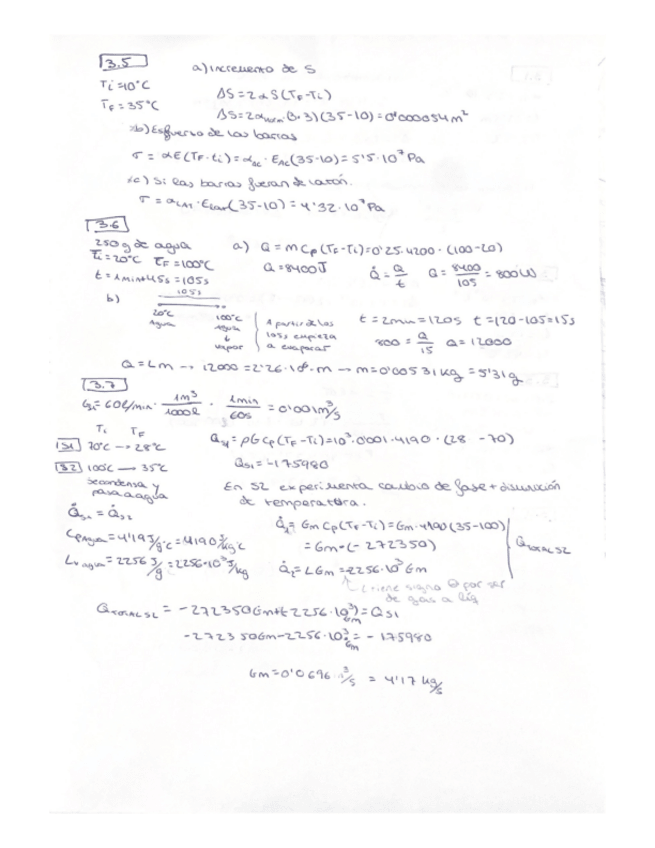 3.5
a) Incremento de S
Ti = 10°C
TF = 35°C
ΔS = 2αS(TF-Ti)
(35-10) = 0'000054 m²
b) Esfuerzo de las barras
σ = αE(TF-ti) = αac · EAC(35-10) = 5'5·10⁷ Pa
c) Si las barras fueran de latón.
σ = αLAT · ELat(35-10) = 4'32·10⁷ Pa
3.6
250 g de agua
Ti = 20°C TF = 100°C
t = 1min+45s = 105s
a) Q = m Cp (TF-Ti) = 0'25·4200·(100-20)
Q = 8400J Q̇ = Q/t Q = 8400/105 = 800W
b)
105s
20°C agua
100°C agua ↓ vapor
A partir de los 105s empieza a evaporar
t = 2min = 120s t = 120-105 = 15s
800 = Q/15 Q = 12000
Q = Lm → 12000 = 2'26·10⁶·m → m = 0'00531 kg = 5'31g
3.7
= 60l/min · 1m³/1000l · 1min/60s = 0'001 m³/s
Ti TF
S1 70°C → 28°C
QS1 = ρGCp(TF-Ti) = 10³·0'001·4190·(28-70)
QS1 = -175980
S2 100°C → 35°C
se condensa y pasa a agua
En S2 experimenta cambio de fase + disminución de temperatura.
Q̇S1 = Q̇S2
CpAgua = 4'19 J/g°C = 4190 J/kg°C
Lv agua = 2256 J/g = 2256·10³ J/kg
Q̇1 = Gm Cp(TF-Ti) = Gm·4190(35-100)
= Gm·(-272350)
Q̇2 = LGm = -2256·10³ Gm
QTOTAL S2
L tiene signo ⊖ por ser de gas a líq
QTOTAL S2 = -272350Gm+(-2256·10³)Gm = QS1
-272350Gm-2256·10³Gm = -175980
Gm = 0'0696 m³/s = 4'17 kg/s